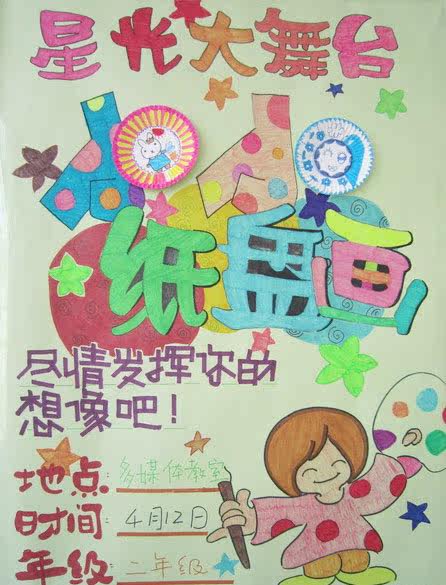 星光大舞台
纸盘画
尽情发挥你的
想像吧！
地点：多媒体教室
时间：4月12日
年级：二年级